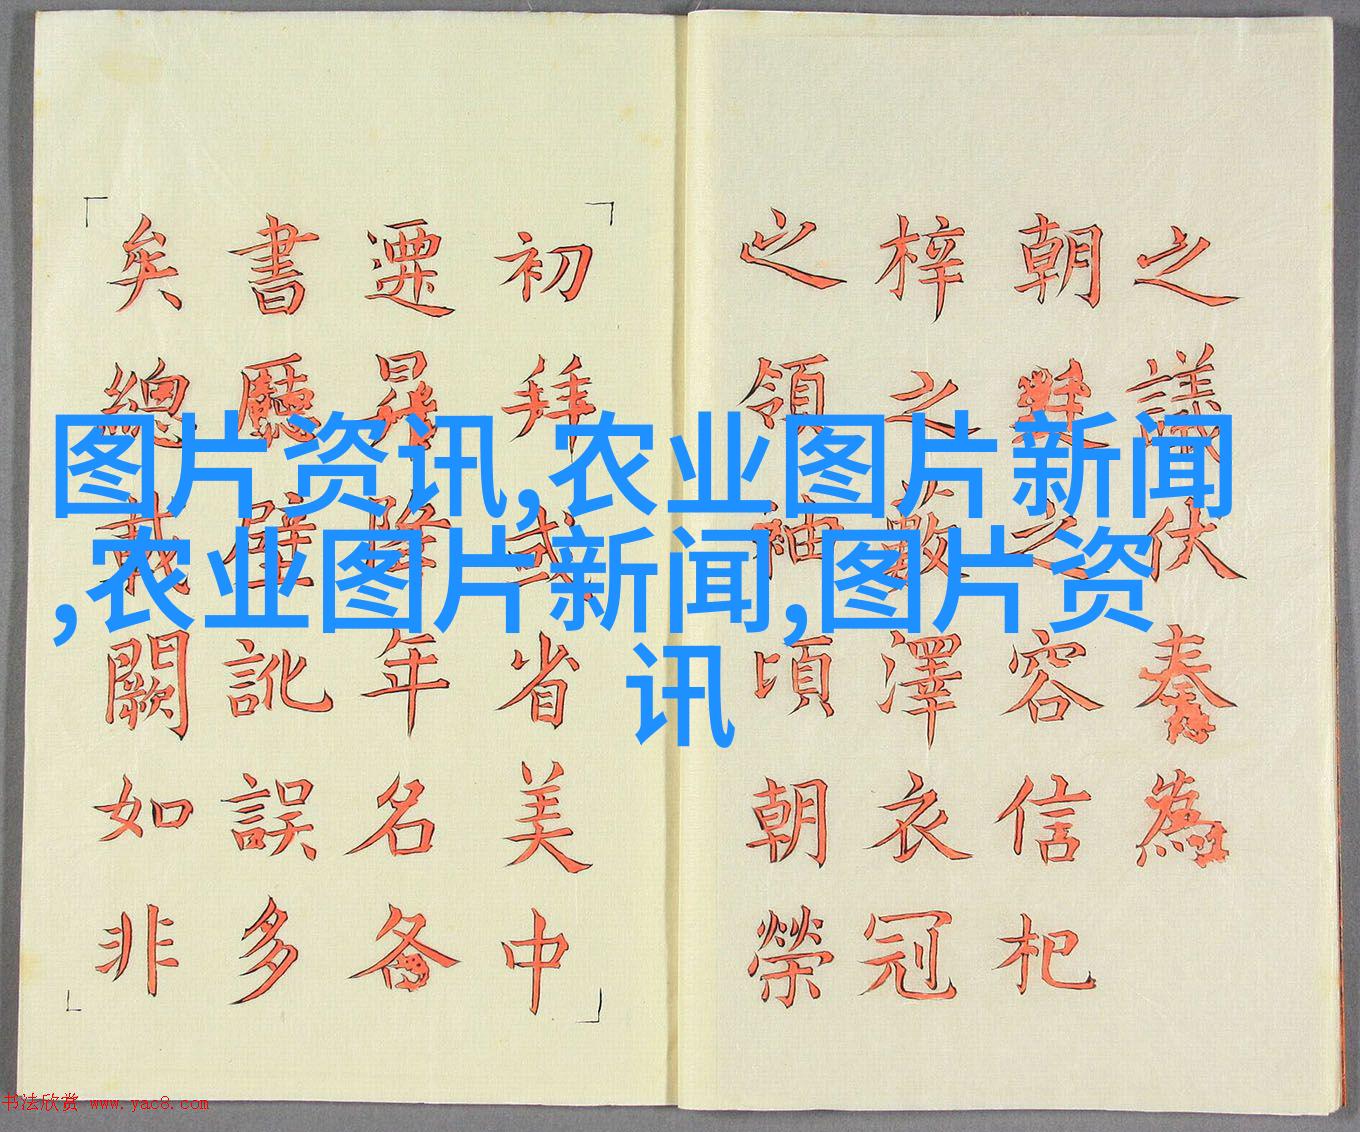 图片资讯,农业图片新闻
,农业图片新闻,图片资
讯
之議伏奏為
朝之容信杞
梓之藪澤衣冠
之領袖頃朝榮
初拜省美中
遷除年名
書廳壁訛誤多
矣總載闕如非
书法欣赏 www.yac8.com